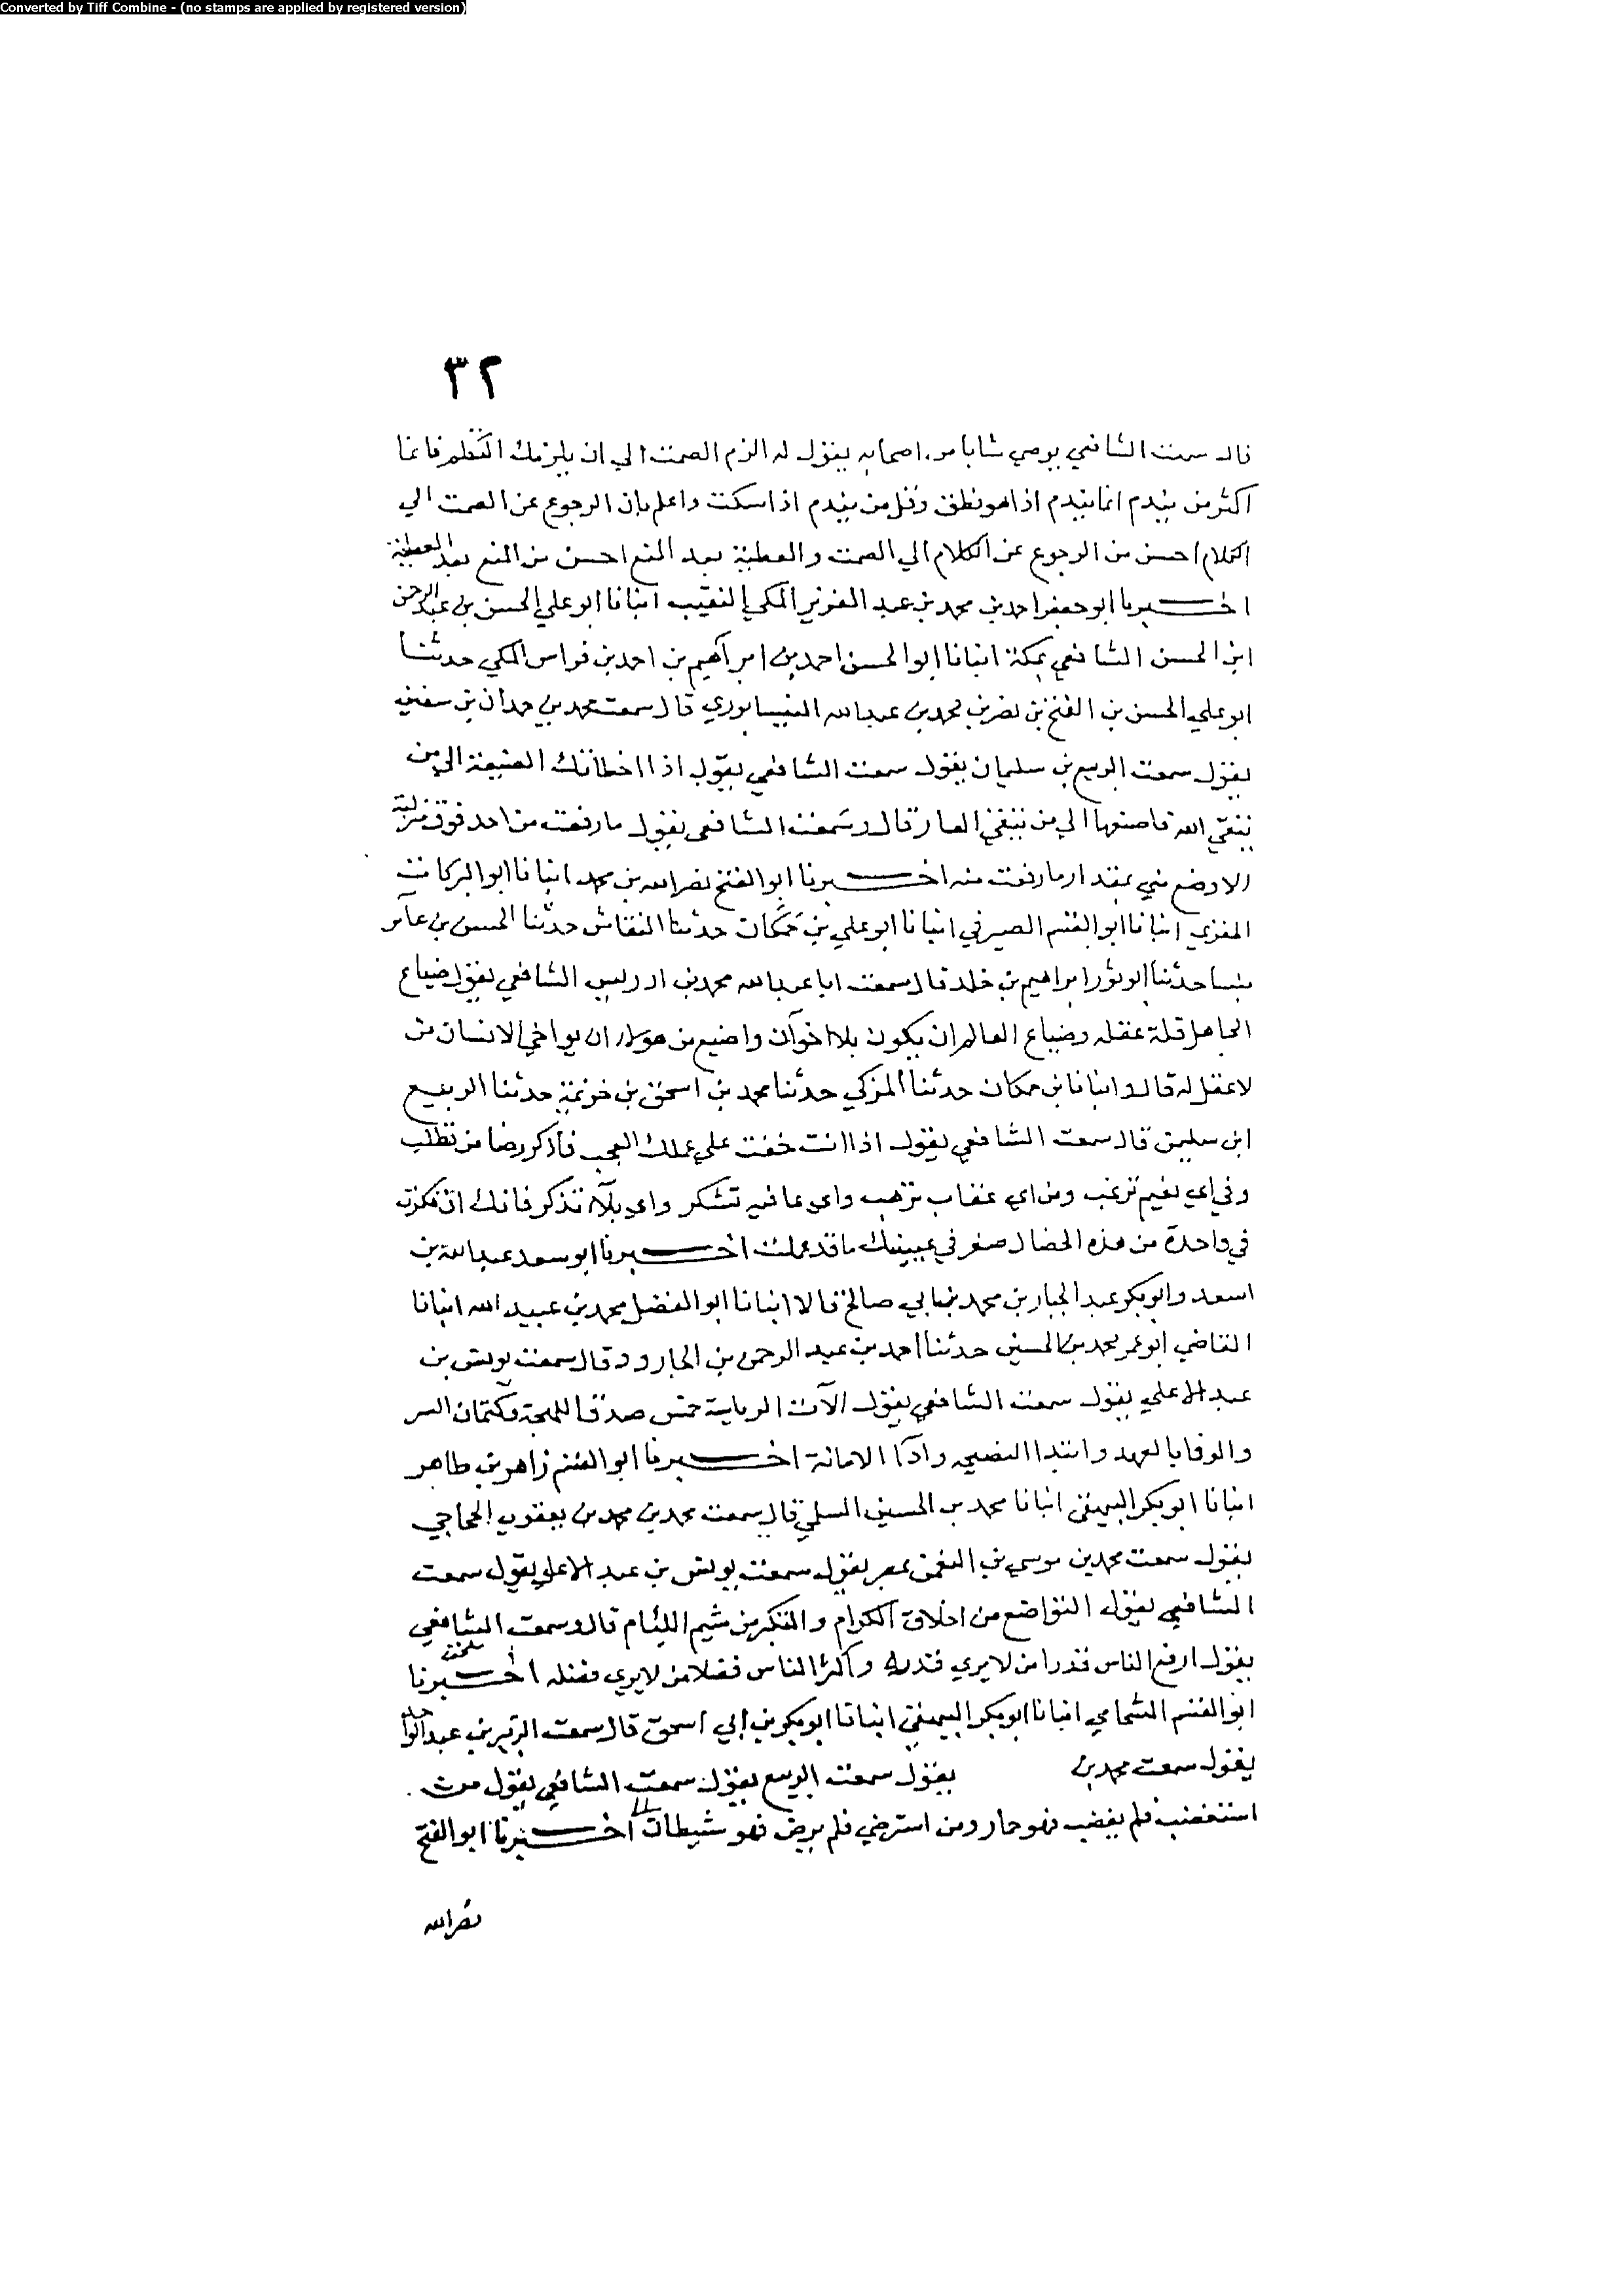 Converted by Tiff Combine - (no stamps are applied by registered version)
٣٢
قال سمعت الشافعي يوصي شابا من اصحابه يقول له الزم الصمت الي ان يلزمك التكلم فانما
اكثر من يندم انما يندم اذا هو نطق وقل من يندم اذا سكت واعلم بان الرجوع عن الصمت الي
الكلام احسن من الرجوع عن الكلام الي الصمت والعطية بعد المنع احسن من المنع بعد العطية
اخبرنا ابو جعفر احمد بن محمد بن عبد العزيز المكي النقيب انبانا ابو علي الحسن بن عبد الرحمن
ابن الحسن الشافعي بمكة انبانا ابو الحسن احمد بن ابراهيم بن احمد بن فراس المكي حدثنا
ابو علي الحسن بن الفتح بن نصر بن محمد بن عبد الله النيسابوري قال سمعت محمد بن حمدان بن سفين
يقول سمعت الربيع بن سليمان يقول سمعت الشافعي يقول اذا اخطاتك الصنيعة الي من
يتقي الله فاصنعها الي من يتقي العار قال وسمعت الشافعي يقول ما رفعت من احد فوق منزلته
الا وضع مني بمقدار ما رفعت منه اخبرنا ابو الفتح نصر الله بن محمد انبانا ابو البركات
المقري انبانا ابو القسم الصيرفي انبانا ابو علي بن حمكان حدثنا النقاش حدثنا الحسن بن عامر
بنسا حدثنا ابو ثور ابراهيم بن خلد قال سمعت ابا عبد الله محمد بن ادريس الشافعي يقول ضياع
الجاهل قلة عقله وضياع العالم ان يكون بلا اخوان واضيع من هولاء ان يواخي الانسان من
لا عقل له قال وانبانا بن حمكان حدثنا المزكي حدثنا محمد بن اسحق بن خزيمة حدثنا الربيع
ابن سليمن قال سمعت الشافعي يقول اذا انت خفت علي عملك العجب فاذكر رضا من تطلب
وفي اي نعيم ترغب ومن اي عقاب ترهب واي عافيه تشكر واي بلاء تذكر فانك اذ تفكرت
في واحدة من هذه الخصال صغر في عينيك ما قد عملت اخبرنا ابو سعد عبد الله بن
اسعد وابو بكر عبد الجبار بن محمد بن ابي صالح قالا انبانا ابو الفضل محمد بن عبيد الله انبانا
القاضي ابو عمر محمد بن الحسين حدثنا احمد بن عبد الرحمن بن الجارود قال سمعت يونس بن
عبد الاعلي يقول سمعت الشافعي يقول الات الرياسة خمس صدق اللهجة وكتمان السر
والوفا بالعهد وابتدا النصيحه وادا الامانة اخبرنا ابو القسم زاهر بن طاهر
انبانا ابو بكر البيهقي انبانا محمد بن الحسين السلمي قال سمعت محمد بن محمد بن يعقوب الحجاجي
يقول سمعت محمد بن موسي بن النعمن بمصر يقول سمعت يونس بن عبد الاعلي يقول سمعت
الشافعي يقول التواضع من اخلاق الكرام والتكبر من شيم اللئام قال وسمعت الشافعي
يقول ارفع الناس قدرا من لا يري قدره واكثر الناس فضلا من لا يري فضله اخبرنا
ابو القسم الشحامي انبانا ابو بكر البيهقي انبانا ابو بكر بن ابي اسحق قال سمعت الزبير بن عبد الواحد
يقول سمعت محمد بن يقول سمعت الربيع يقول سمعت الشافعي يقول من
استغضب فلم يغضب فهو حمار ومن استرضي فلم يرض فهو شيطان اخبرنا ابو الفتح
نصر الله